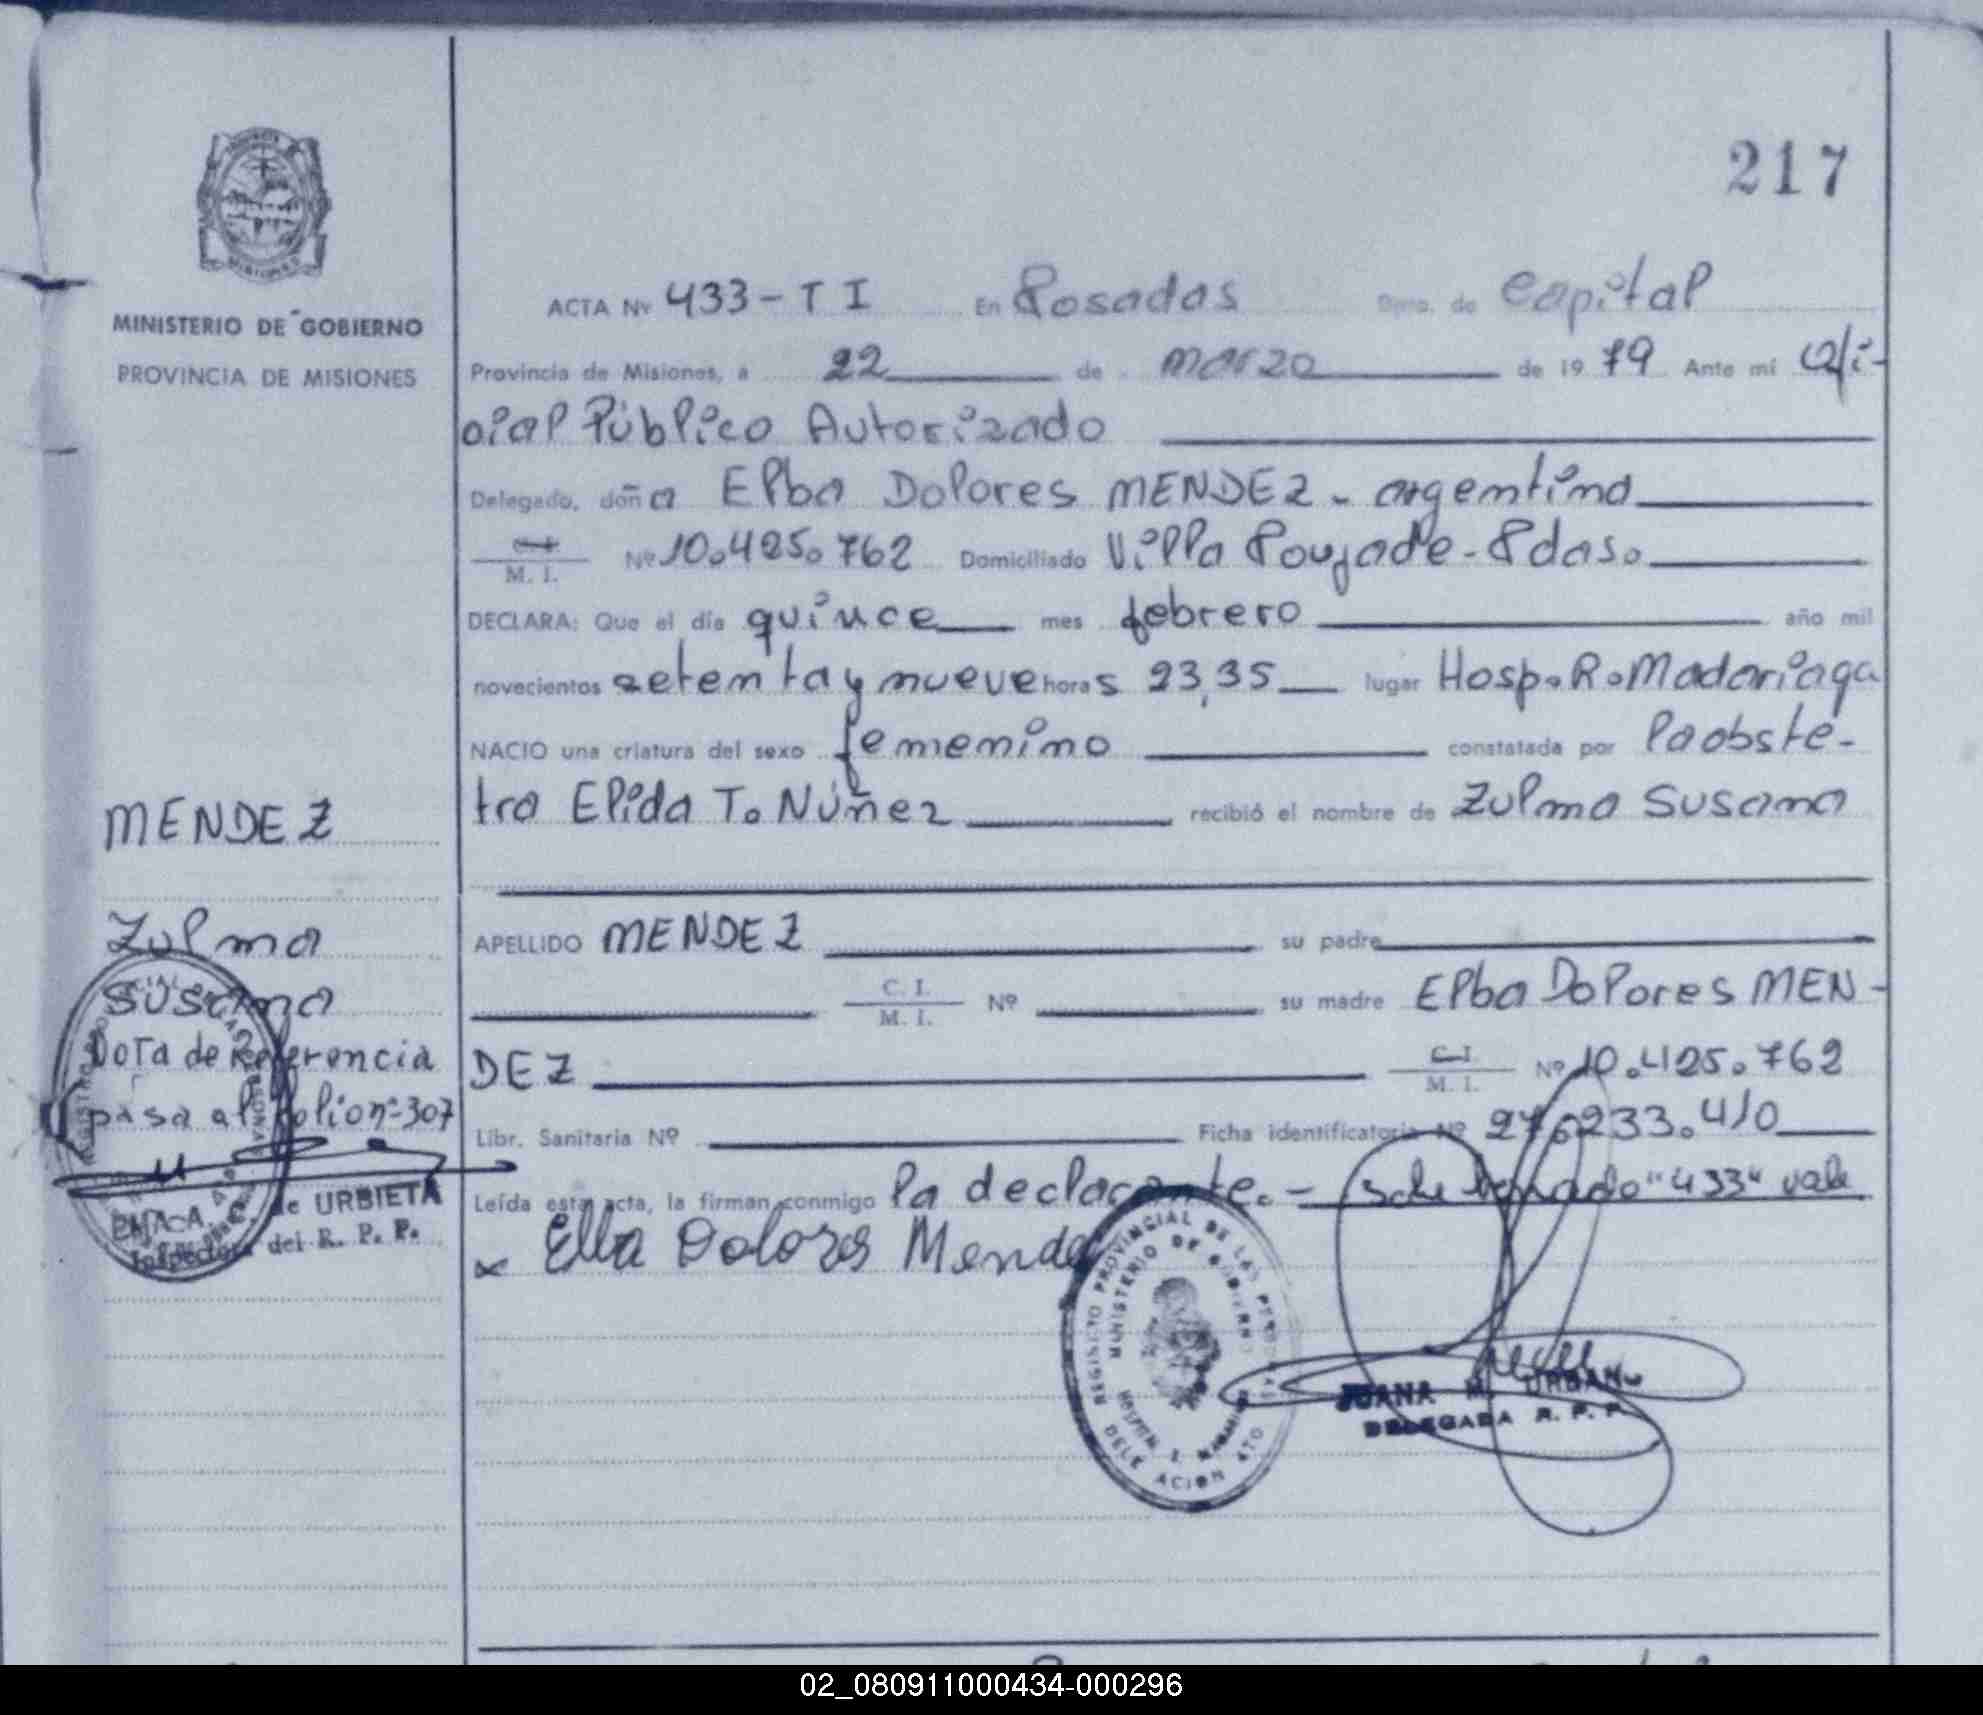 217
MINISTERIO DE GOBIERNO
PROVINCIA DE MISIONES
ACTA Nº 433-T I En Posadas Dpto. de Capital
Provincia de Misiones, a 22 de marzo de 1979 Ante mí Ofi-
cial Público Autorizado
Delegado, doña Elba Dolores MENDEZ - argentina
M. I. Nº 10.425.762 Domiciliado Villa Poujade - Pdas.
DECLARA: Que el día quince mes febrero año mil
novecientos setenta y nueve horas 23,35 lugar Hosp. R. Madariaga
NACIO una criatura del sexo femenino constatada por la obste-
tra Elida T. Núñez recibió el nombre de Zulma Susana
MENDEZ
Zulma
Susana
APELLIDO MENDEZ su padre
C. I. M. I. Nº su madre Elba Dolores MEN-
DEZ C. I. M. I. Nº 10.425.762
Libr. Sanitaria Nº Ficha identificatoria Nº 27.233.410
Leída esta acta, la firman conmigo la declarante. - sobre borrado "433" vale
Elba Dolores Mendez
Nota de Referencia
pasa al folio nº 307
de URBIETA
Inspectora del R. P. P.
REGISTRO PROVINCIAL DE LAS PERSONAS
MINISTERIO DE GOBIERNO
DELEGACION
JUANA M. URBAN
DELEGADA R. P. P.
02_080911000434-000296